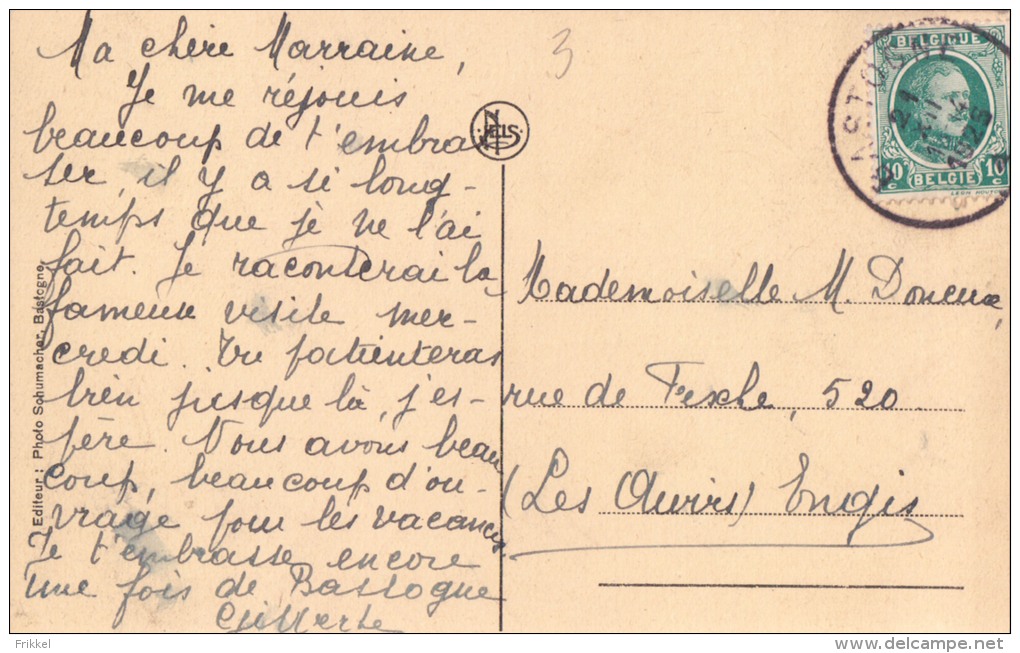 Ma chère Marraine,
Je me réjouis
beaucoup de t'embras
ser, il y a si long-
temps que je ne l'ai
fait. Je raconterai la
fameuse visite mer-
credi. Tu patienteras
bien jusque là, j'es-
père. Nous avons beau
coup, beaucoup d'ou-
vrage pour les vacances
Je t'embrasse encore
une fois de Bastogne
Gilberte
3
NELS
Editeur : Photo Schumacher, Bastogne.
BASTOGNE
21
1925
BELGIQUE
10 c 10 c
BELGIE
Mademoiselle M. Doneux,
rue de Fexhe, 520
(Les Awirs) Engis
Frikkel
www.delcampe.net